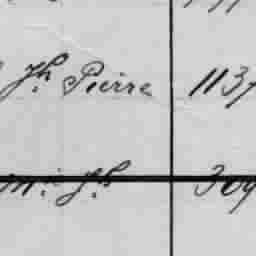 Jh Pierre 1137
m. Jh 309